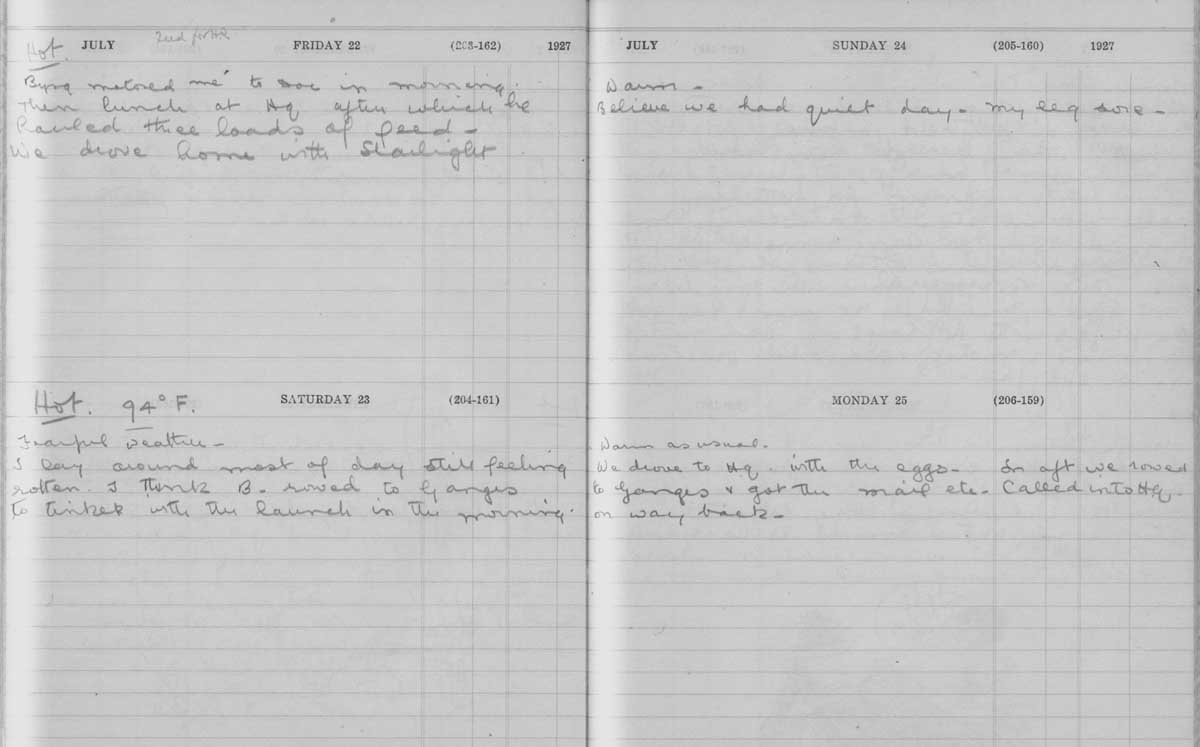 JULY 2nd for HR FRIDAY 22 (203-162) 1927
Hot.
Byng motored me to soe in morning.
Then lunch at Hq after which he
hauled three loads of feed -
We drove home with Starlight
Hot. 94° F. SATURDAY 23 (204-161)
Fearful weather -
I lay around most of day still feeling
rotten. I think B. rowed to Ganges
to tinker with the launch in the morning.
JULY SUNDAY 24 (205-160) 1927
Warm -
Believe we had quiet day - my leg sore -
MONDAY 25 (206-159)
Warm as usual.
We drove to Hq. with the eggs - In aft we rowed
to Ganges & got the mail etc - Called in to Hq.
on way back -